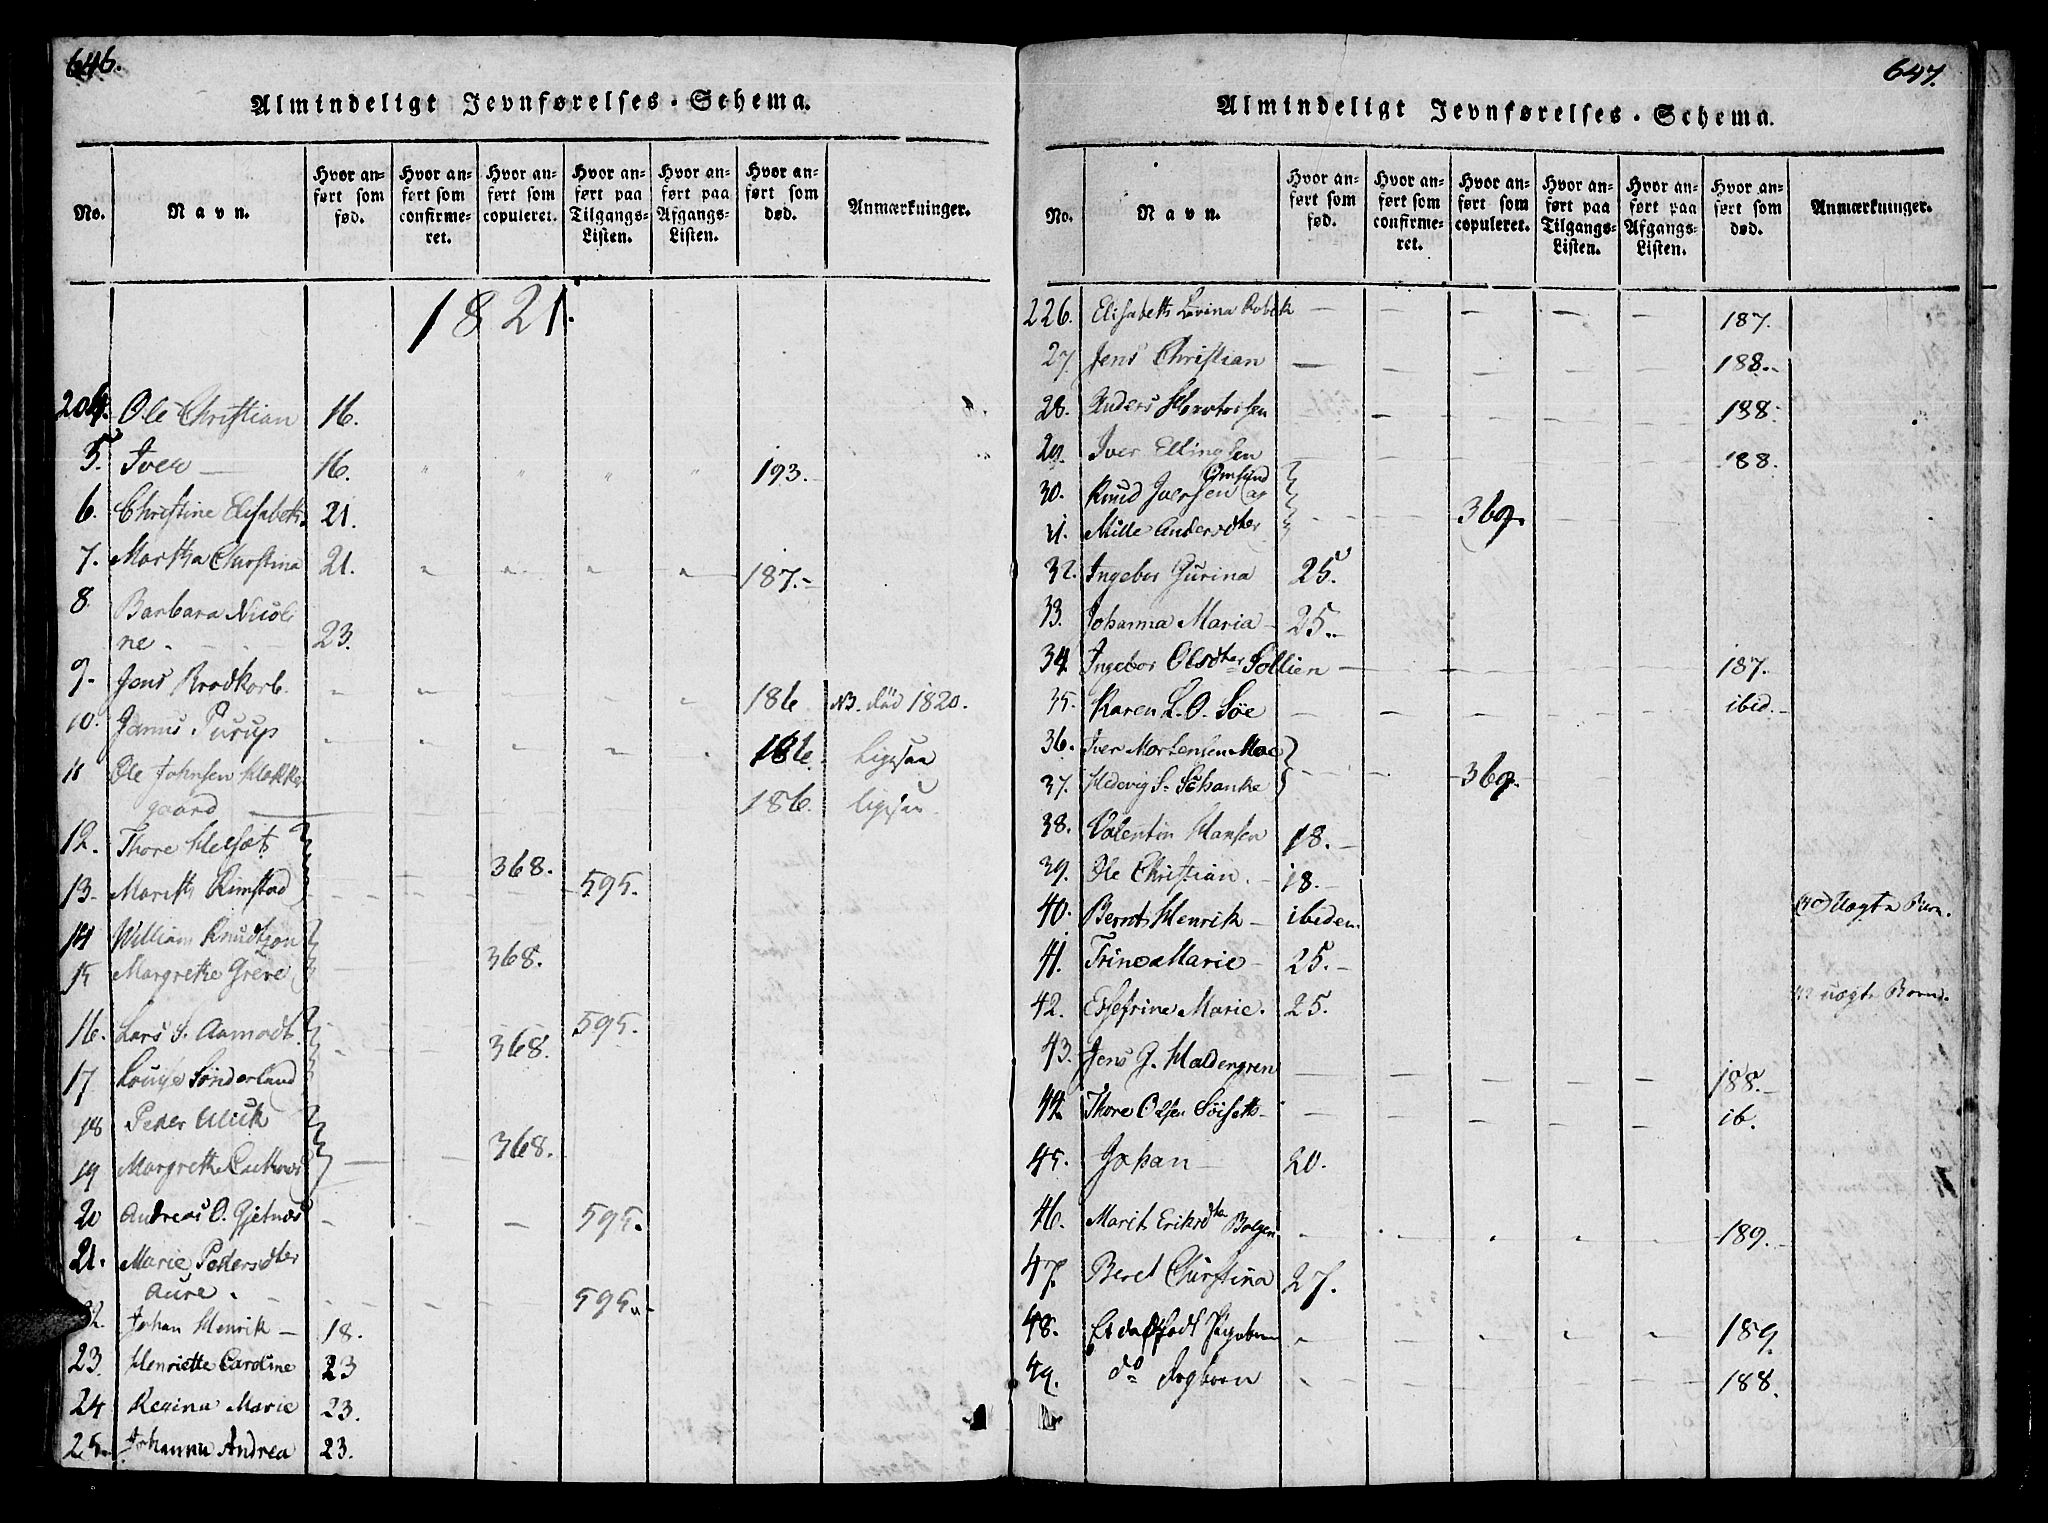 646.
Almindeligt Jevnførelses-Schema.
No.
Navn.
Hvor an-
ført som
fød.
Hvor an-
ført som
confirme-
ret.
Hvor an-
ført som
copuleret.
Hvor an-
ført paa
Tilgangs-
Listen.
Hvor an-
ført paa
Afgangs-
Listen.
Hvor an-
ført som
død.
Anmærkninger.
1821.
204. Ole Christian 16.
5. Iver — 16. " " " " 193.
6. Christine Elisabeth 21.
7. Martha Christina 21. " " " " 187.-
8. Barbara Nicoli
ne. 23.
9. Jens Brodkorb. 186 NB. död 1820.
10. Janus Purup 186. Ligesaa
11 Ole Johnsen Klokker
gaard 186. ligesaa
12. Thore Helsæt 368.
13. Marith Rimstad 595.
14 William Knudtzon 368.
15 Margrethe Greve
16. Lars S. Aamodt. 368. 595.
17 Louise Sønderland
18 Peder Ulick 368.
19 Margrethe
20 Andreas O. Gjetnæs 595.
21. Marie Pedersdter
Aure. 595.
22. Johan Henrik — 18.
23. Henriette Cardine 23
24 Regina Marie 23.
25. Johanna Andrea 23.
647.
Almindeligt Jevnførelses-Schema.
No.
Navn.
Hvor an-
ført som
fød.
Hvor an-
ført som
confirme-
ret.
Hvor an-
ført som
copuleret.
Hvor an-
ført paa
Tilgangs-
Listen.
Hvor an-
ført paa
Afgangs-
Listen.
Hvor an-
ført som
død.
Anmærkninger.
226. Elisabeth Lovina Robek 187.
27. Jens Christian — 188.
28. Anders 188.
29. Iver Ellingsen 188.
30. Knud Iversen Omsund og
31. Mille Andersdter 369.
32. Ingebor Gurina 25.
33. Johanna Maria — 25.
34 Ingebor Olsdter Sollien 187.
35. Karen L. O. Söe ibid.
36. Iver Mortensen Moe
37. Hedevig S. Schanke 369.
38. Valentin Hansen 18.
39. Ole Christian. 18.
40. Bernt Henrik — ibidem. (40) Uægte Barn.
41. Trine Marie — 25.
42. Essefrine Marie. 25. 42 uægte Barn.
43. Jens G. Haldengren 188.
44. Thore Olsen Söiseth — ib.
45. Johan — 20.
46. Marit Eriksdter Bolgen 189.
47. Beret Christina 27.
48. Et dødfødt Pigebarn 189.
49. do 188.